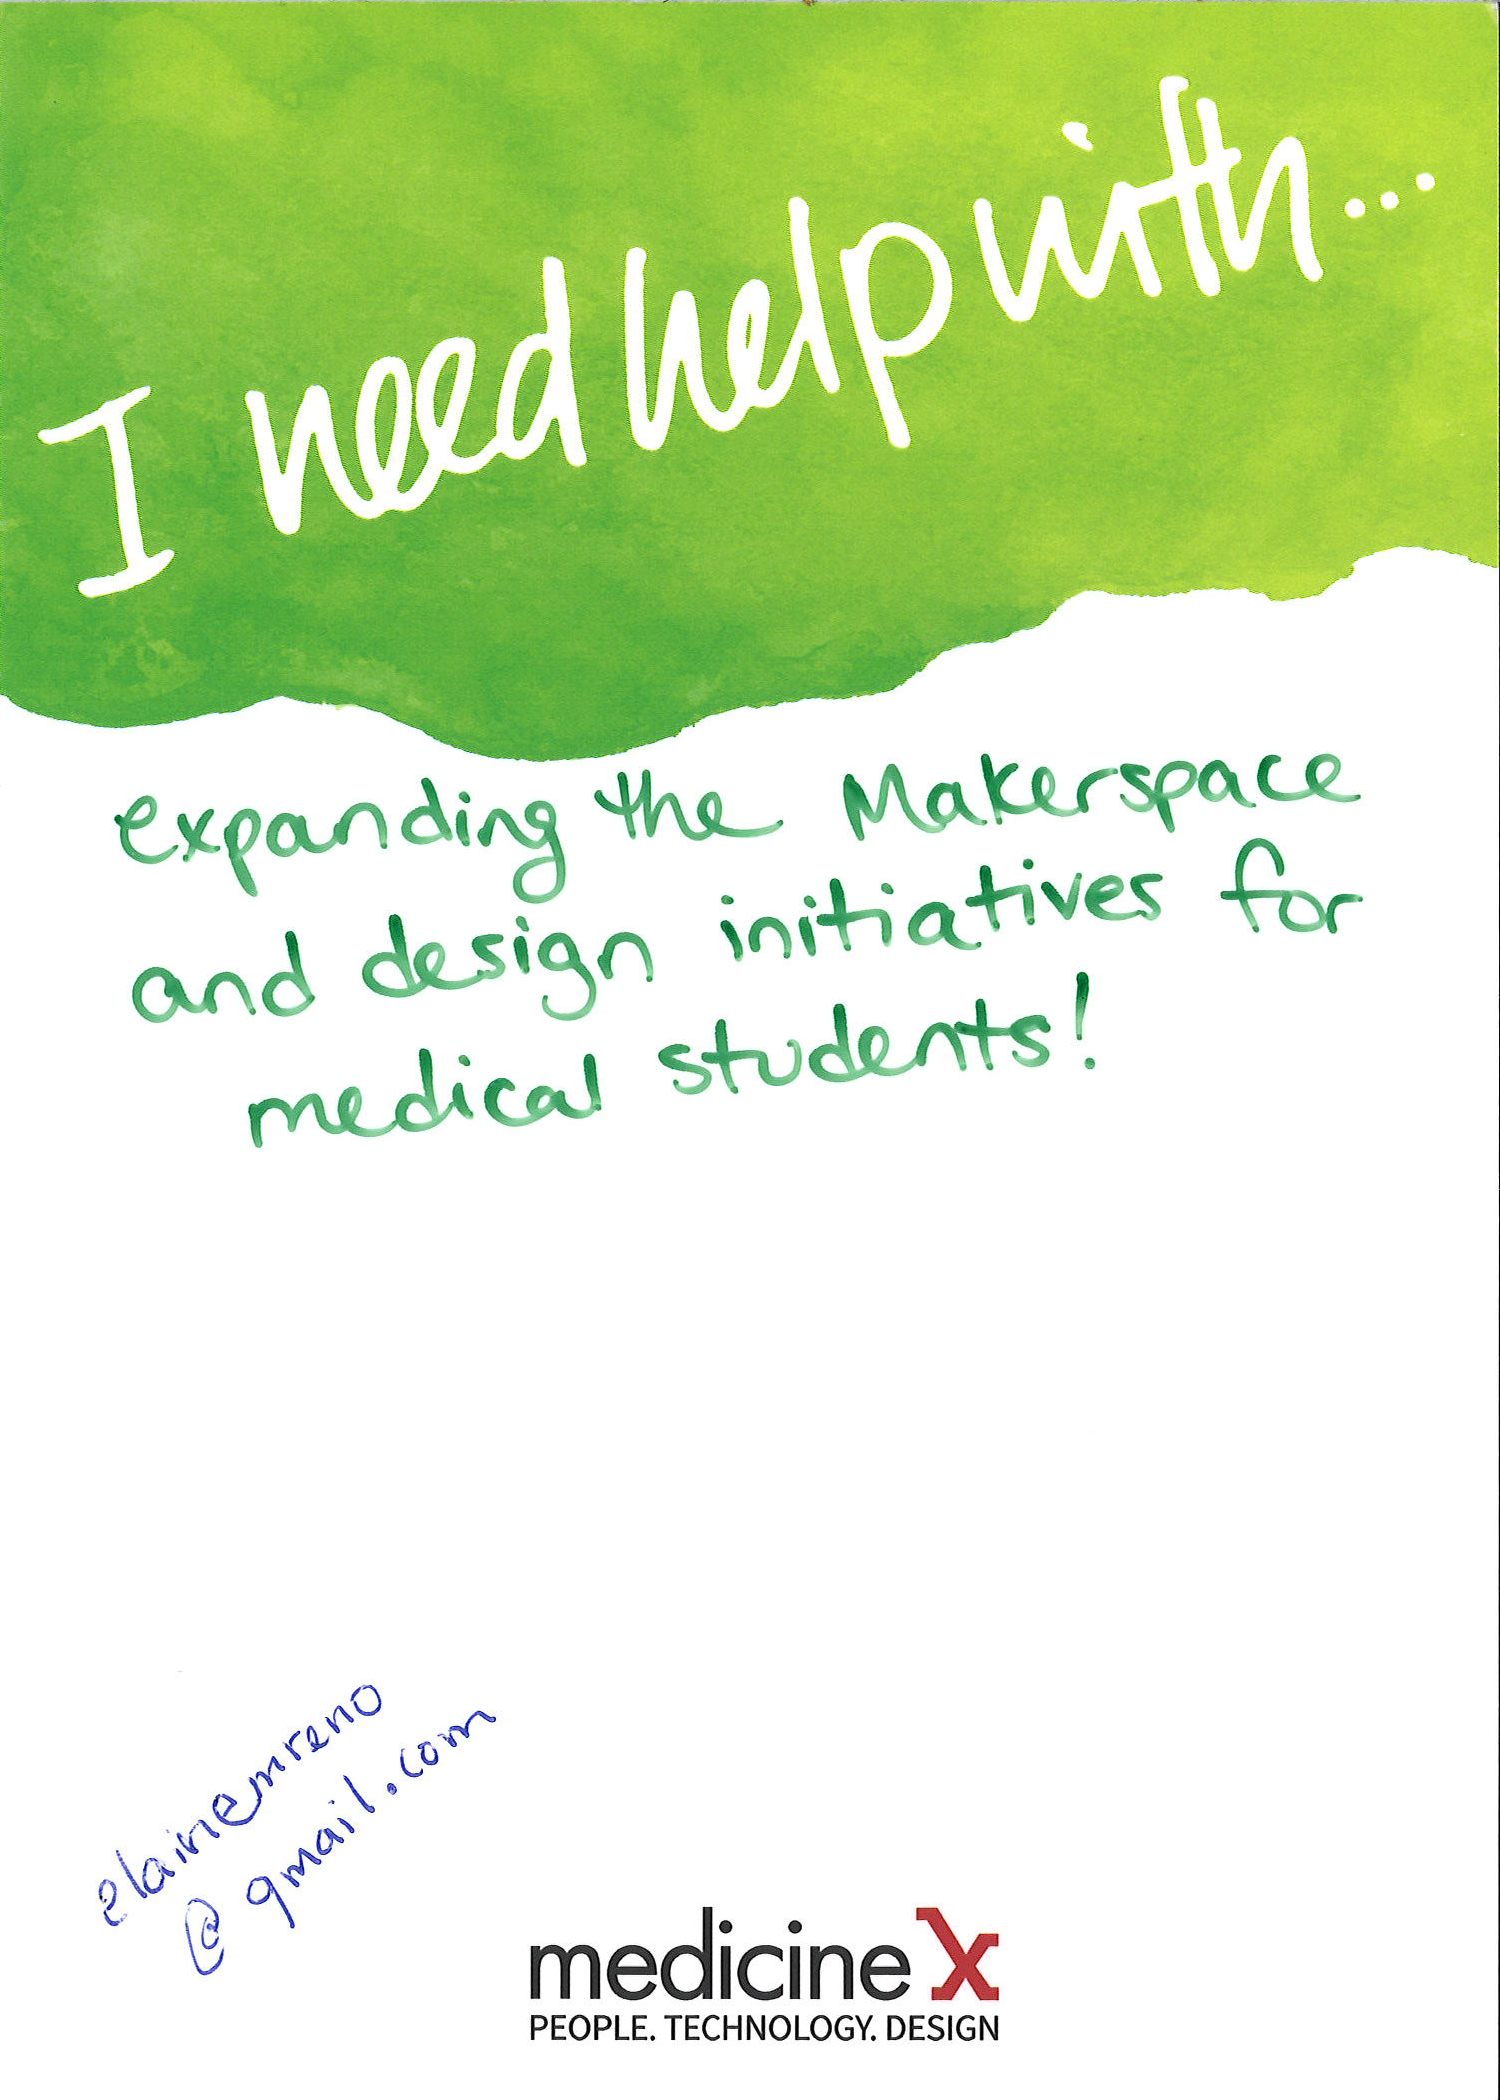 I need help with...
expanding the Makerspace
and design initiatives for
medical students!
elainemreno
@gmail.com
medicine X
PEOPLE. TECHNOLOGY. DESIGN